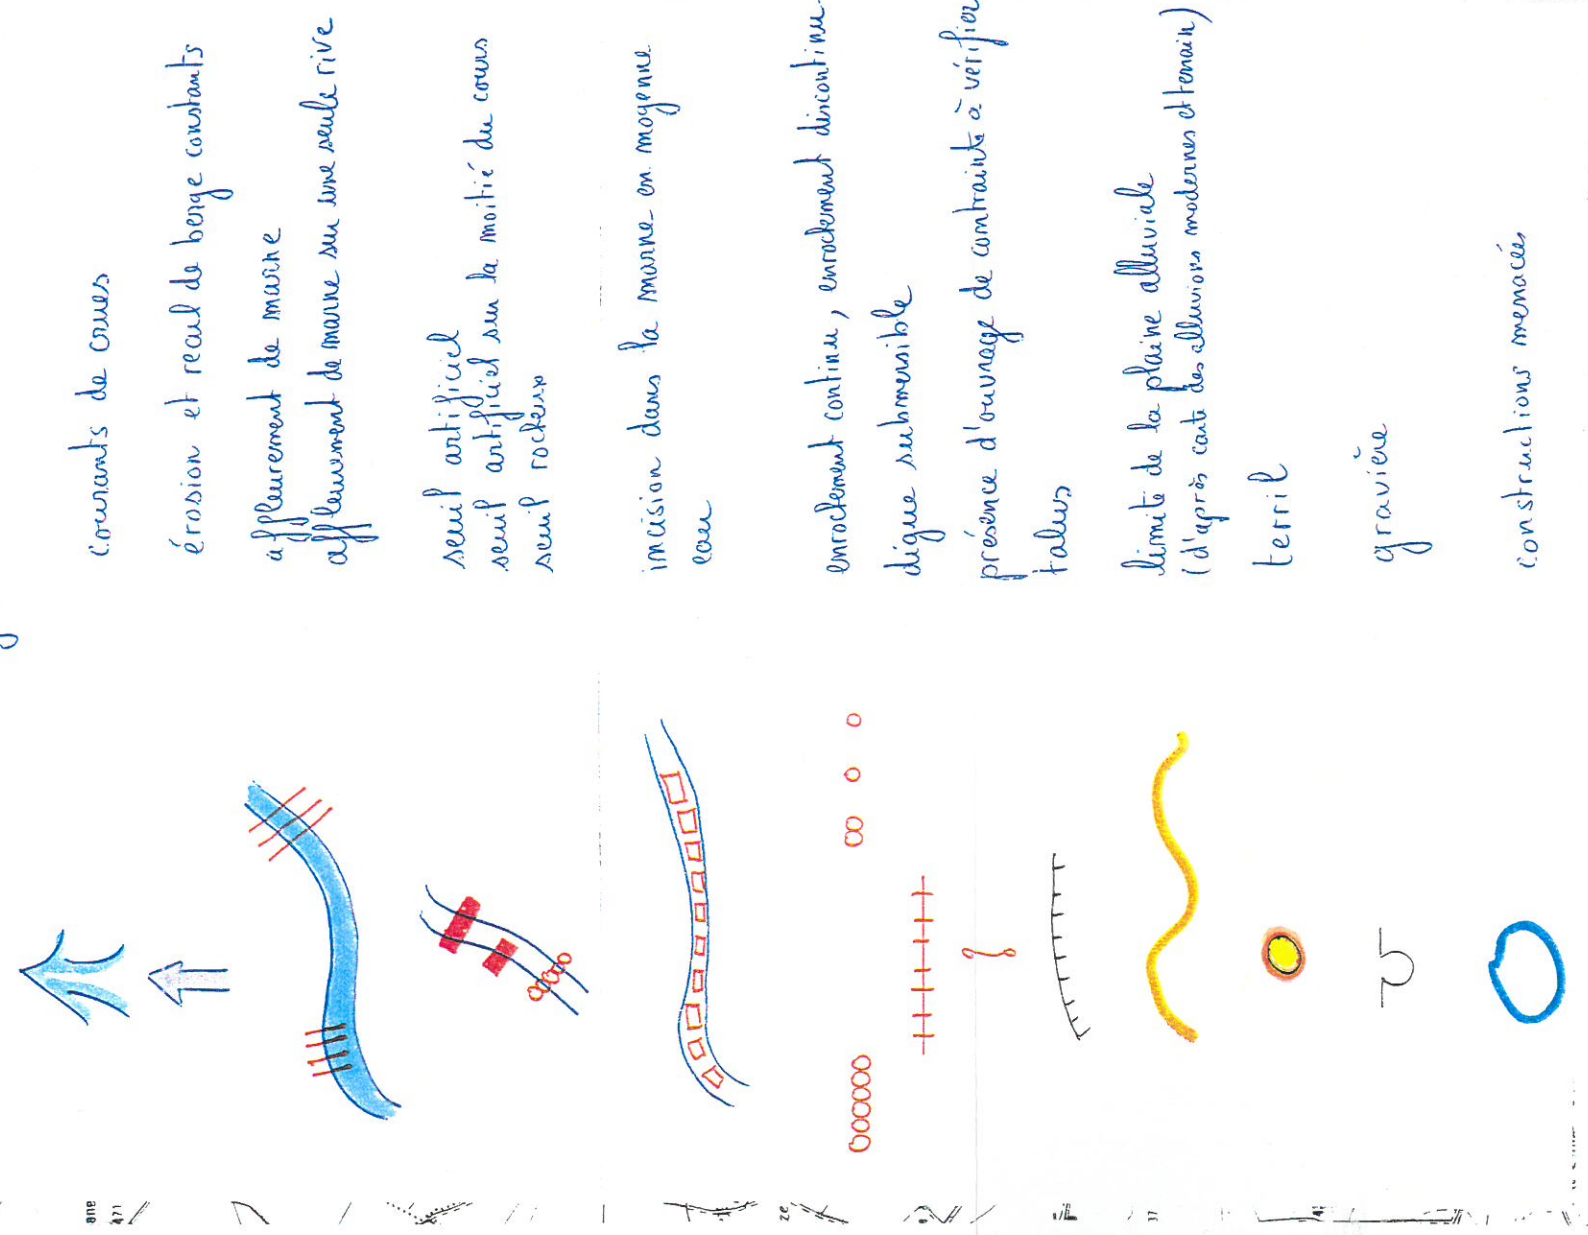 courants de crues
érosion et recul de berge constants
affleurement de marne
affleurement de marne sur une seule rive
seuil artificiel
seuil artificiel sur la moitié du cours
seuil rocheux
incision dans la marne en moyenne
eau
enrochement continu, enrochement discontinu
digue submersible
présence d'ouvrage de contrainte à vérifier
talus
limite de la plaine alluviale
(d'après carte des alluvions modernes et terrain)
terril
gravière
constructions menacées
ane
471
ze
37